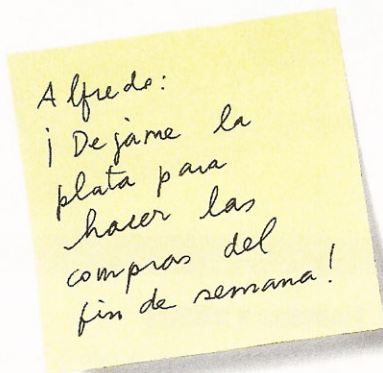 Alfredo:
¡Dejame la
plata para
hacer las
compras del
fin de semana!